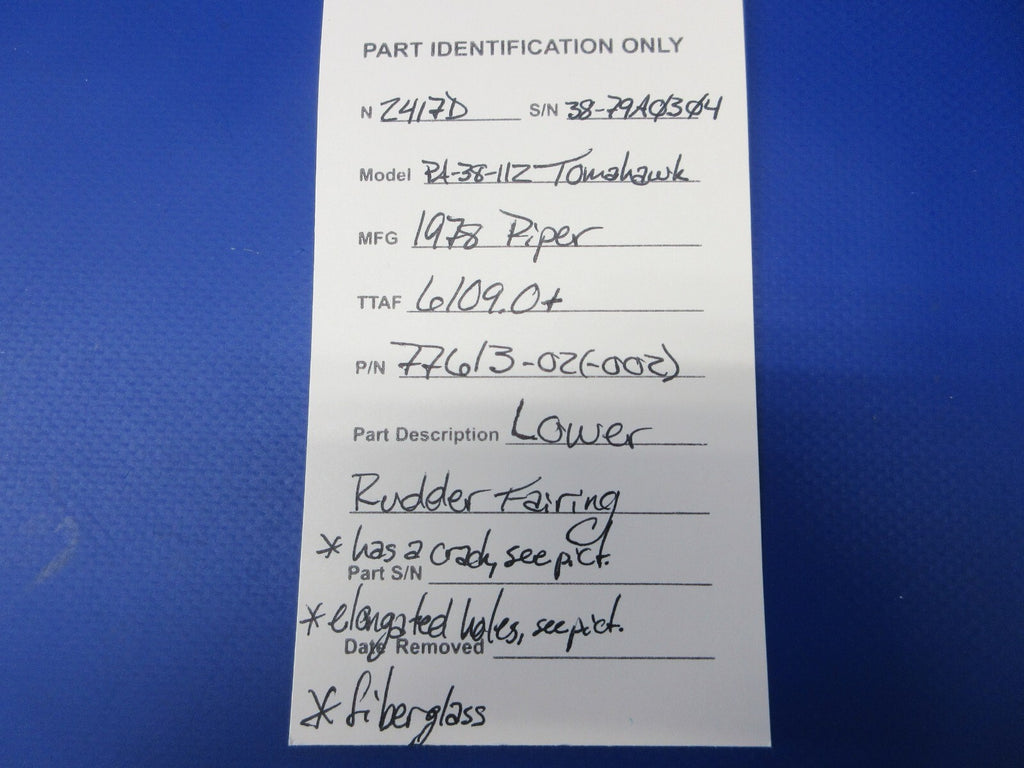 PART IDENTIFICATION ONLY
N 2417D S/N 38-79A0304
Model PA-38-112 Tomahawk
MFG 1978 Piper
TTAF 6109.0+
P/N 77613-02(-002)
Part Description Lower
Rudder Fairing
* has a crack, see pict.
Part S/N
* elongated holes, see pict.
Date Removed
* fiberglass